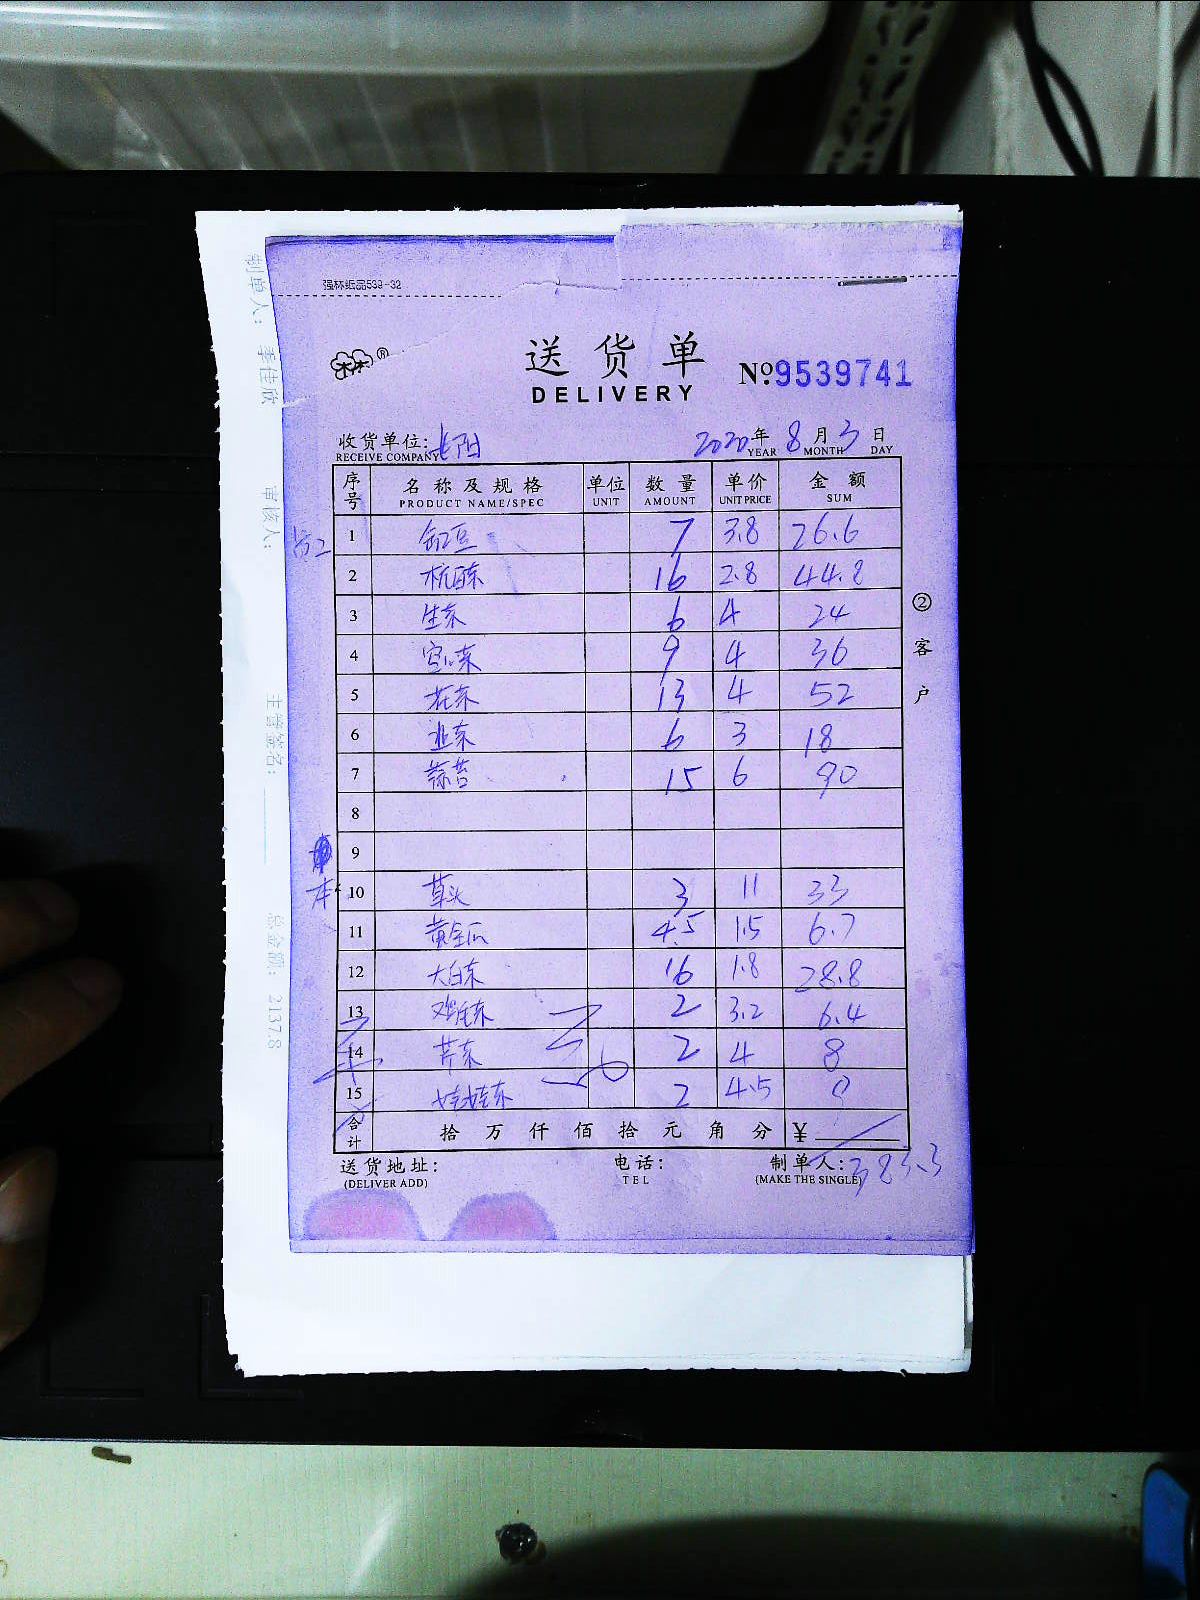 强林纸品539-32
送货单
DELIVERY
Nº.9539741
收货单位: 长阳
RECEIVE COMPANY
2020年 8月 3日
YEAR MONTH DAY
序号 名称及规格 单位 数量 单价 金额
PRODUCT NAME/SPEC UNIT AMOUNT UNIT PRICE SUM
1 缸豆 7 3.8 26.6
2 杭白东 16 2.8 44.8
3 生东 6 4 24
4 空心菜 9 4 36
5 花东 13 4 52
6 韭东 6 3 18
7 蒜苔 15 6 90
8
9
本
10 草头 3 11 33
11 黄金瓜 4.5 1.5 6.7
12 大白东 16 1.8 28.8
13 2 3.2 6.4
14 芹东 2 4 8
15 娃娃东 2 4.5 9
合计 拾万仟佰拾元角分 ¥
383.3
送货地址:
(DELIVER ADD)
电话:
TEL
制单人:
(MAKE THE SINGLE)
②客户
制单人: 季佳欣
审核人:
主管签名:
总金额: 2137.8